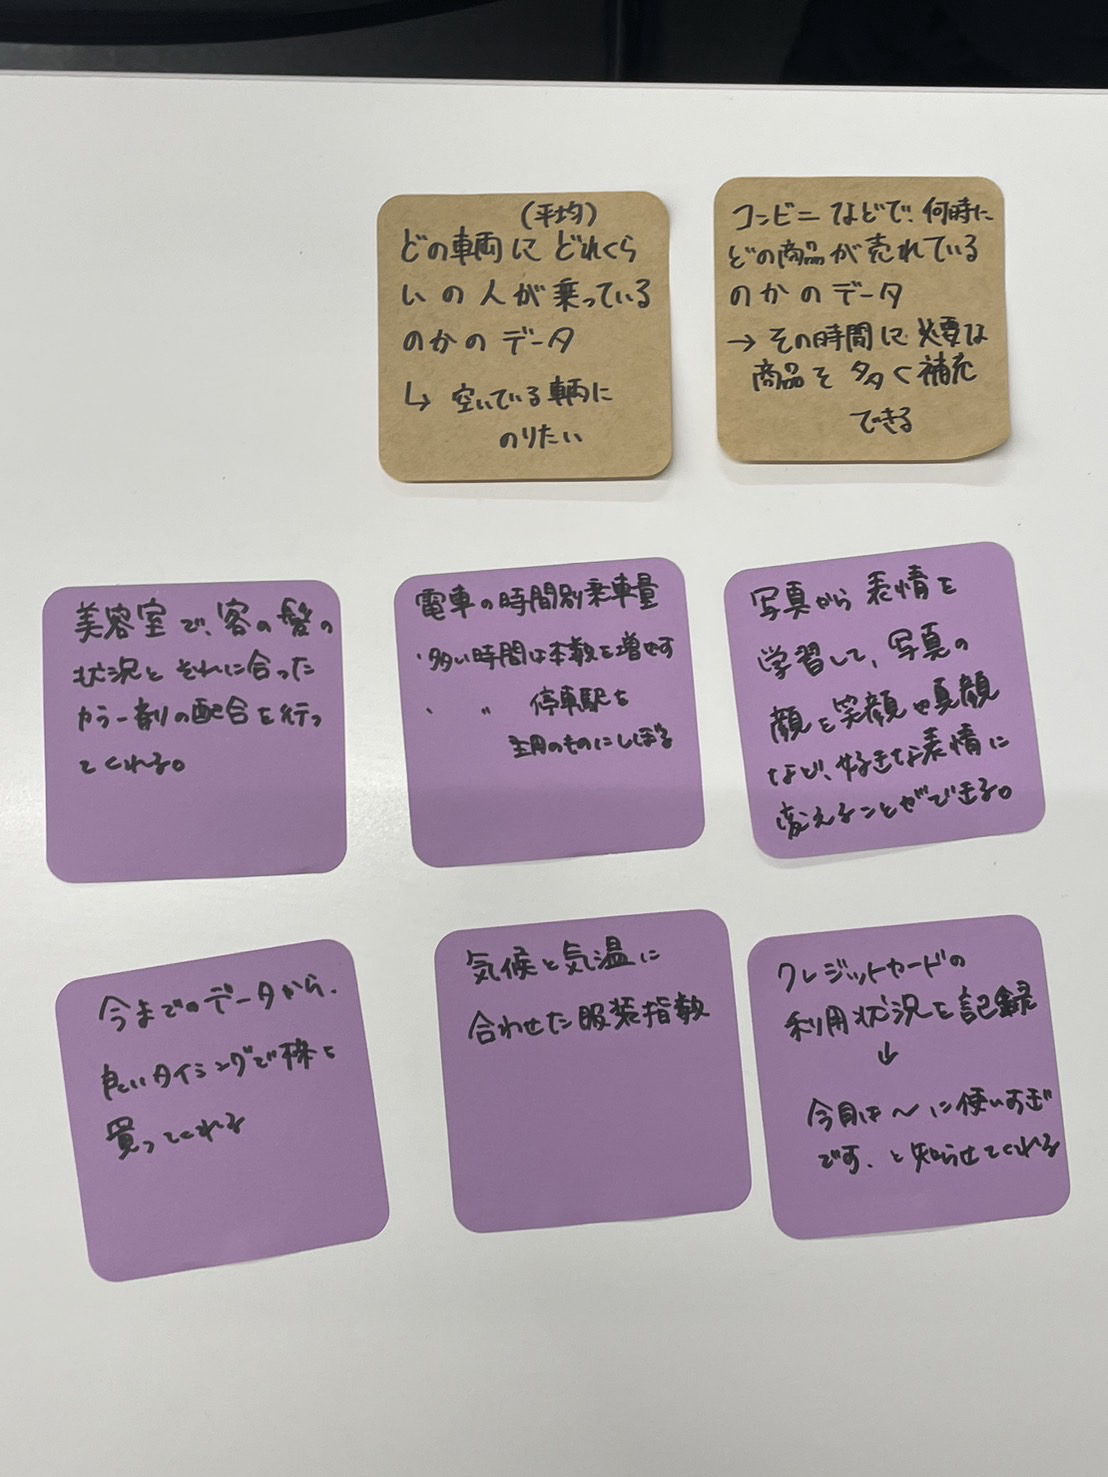 (平均)
どの車両にどれくら
いの人が乗っている
のかのデータ
↳ 空いている車両に
のりたい
コンビニなどで、何時に
どの商品が売れている
のかのデータ
→ その時間に必要な
商品を多く補充
できる
美容室で、客の髪の
状況とそれに合った
カラー剤の配合を行っ
てくれる。
電車の時間別乗車量
・多い時間は本数を増やす
、 〃 停車駅を
主用のものにしぼる
写真から表情を
学習して、写真の
顔を笑顔や真顔
など、好きな表情に
変えることができる。
今までのデータから、
良いタイミングで株を
買ってくれる
気候と気温に
合わせた服装指数
クレジットカードの
利用状況を記録
↓
今月は〜に使いすぎ
です、と知らせてくれる